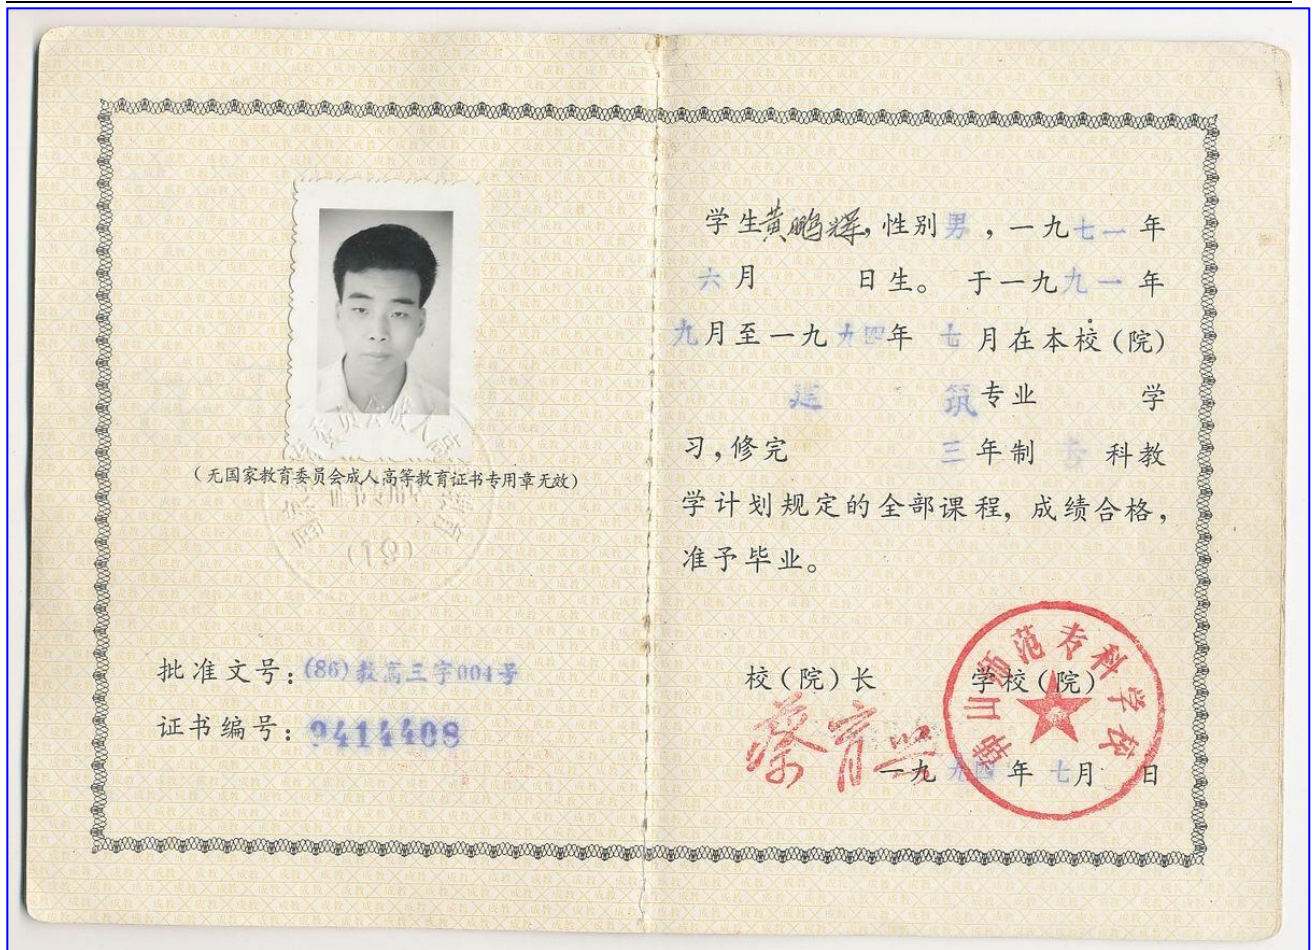 (无国家教育委员会成人高等教育证书专用章无效)
(19)
批准文号:(86)教高三字004号
证书编号:9414408
学生黄鹏辉,性别男,一九七一年
六月 日生。 于一九九一年
九月至一九九四年 七月在本校(院)
建 筑专业 学
习,修完 三年制 专 科教
学计划规定的全部课程,成绩合格,
准予毕业。
校(院)长 学校(院)
蔡育兴
韩山师范专科学校
一九九四年七月 日